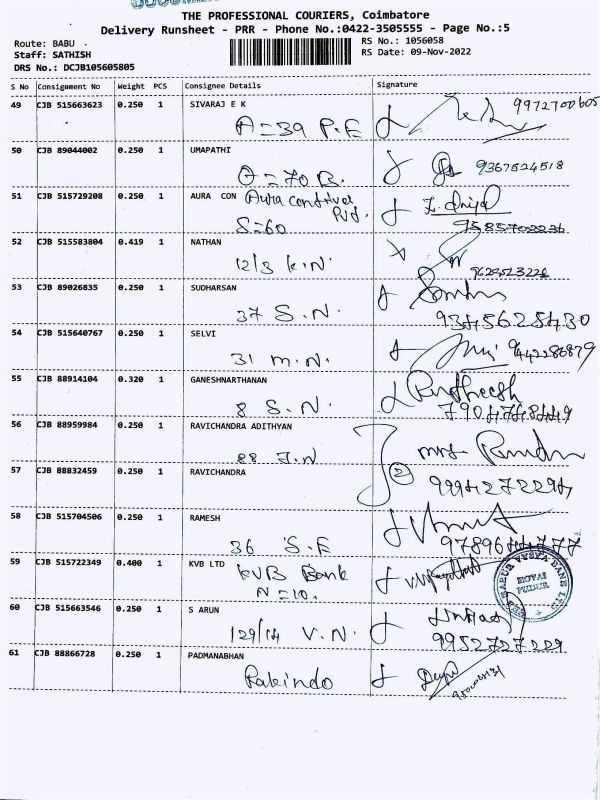 THE PROFESSIONAL COURIERS, Coimbatore
Delivery Runsheet - PRR - Phone No.:0422-3505555 - Page No.:5
Route: BABU
RS No.: 1056058
Staff: SATHISH
RS Date: 09-Nov-2022
DRS No.: DCJB105605805
S No Consignment No Weight PCS Consignee Details Signature
49 CJB 515663623 0.250 1 SIVARAJ E K 9972700605
A=39 P.E
50 CJB 89044002 0.250 1 UMAPATHI
A=70 B. 9367524518
51 CJB 515729208 0.250 1 AURA CON Aura
Pvt.
S=60 9585702236
52 CJB 515583804 0.419 1 NATHAN
12/3 K.N. 9629523226
53 CJB 89026835 0.250 1 SUDHARSAN
37 S.N. 9345625430
54 CJB 515640767 0.250 1 SELVI
31 M.N. 9442286879
55 CJB 88914104 0.320 1 GANESHNARTHANAN Rudheesh
8 S.N. 7904748449
56 CJB 88959984 0.250 1 RAVICHANDRA ADITHYAN
88 J.N
57 CJB 88832459 0.250 1 RAVICHANDRA 2
9994272294
58 CJB 515704506 0.250 1 RAMESH
36 S.E 9789644777
59 CJB 515722349 0.400 1 KVB LTD
KVB Bank
N=10.
KARUR VYSYA BANK LTD
KOVAI
PUDUR
60 CJB 515663546 0.250 1 S ARUN
129/14 V.N. 9952727229
61 CJB 88866728 0.250 1 PADMANABHAN
Pakindo